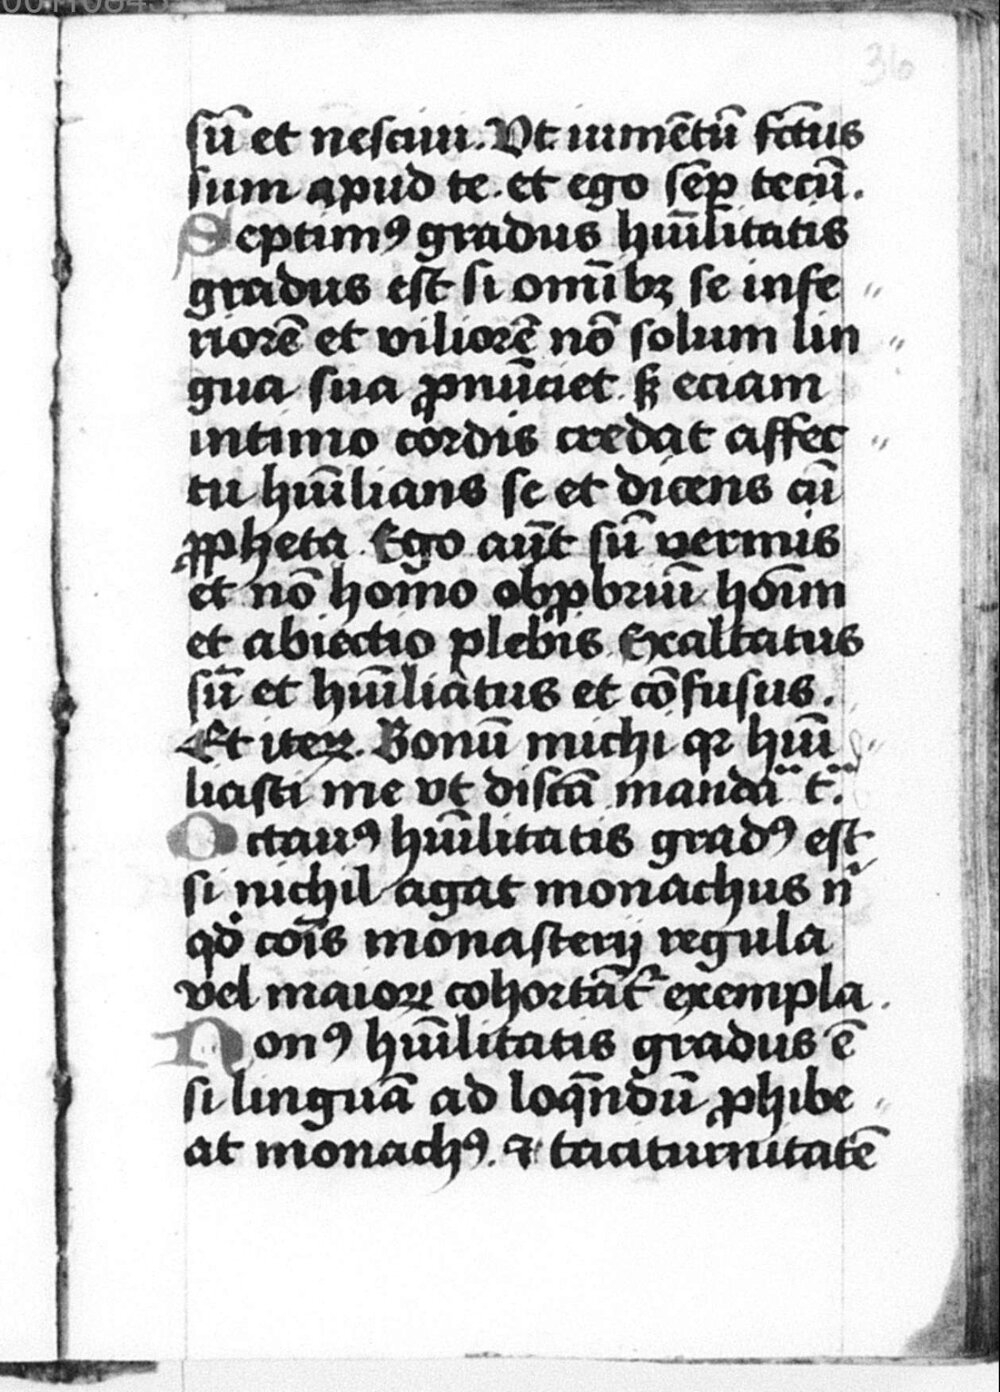 36
sū et nesciui. Vt iumētū fc̄tus
sum apud te. et ego sēp tecū.
Septimꝰ gradus hūilitatis
gradus est si omībꝫ se infe〃
riorē et viliorē nō solum lin〃
gua sua ꝓnūciet. sꝫ eciam
intimo cordis credat affec〃
tu hūilians se et dicens cū
ꝓpheta. Ego aūt sū vermis
et nō homo obꝓbriū hoīm
et abiectio plebis. Exaltatus
sū et hūiliatus et cōfusus.
Et iteꝝ. Bonū michi qꝛ hūi〃
liasti me vt discā manda t.
Octauꝰ hūilitatis gradꝰ est
si nichil agat monachus n
qd cōis monasterij regula
vel maioꝝ cohortāt exempla.
Nonꝰ hūilitatis gradus ē
si linguā ad loquēndū ꝓhibe〃
at monachꝰ. ⁊ taciturnitatē